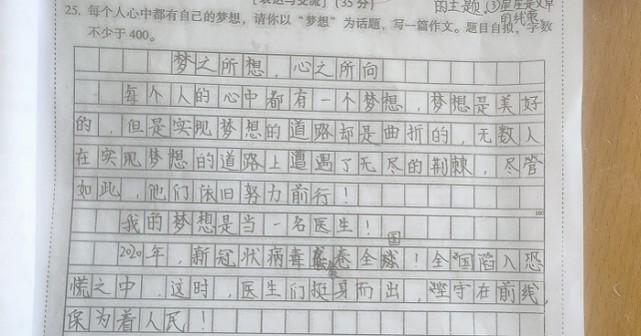 [表达与交流](35分)
的主题,③
25. 每个人心中都有自己的梦想,请你以“梦想”为话题,写一篇作文。题目自拟,字数
不少于400。
梦之所想,心之所向
每个人的心中都有一个梦想,梦想是美好
的,但是实现梦想的道路却是曲折的,无数人
在实现梦想的道路上遭遇了无尽的荆棘,尽管
如此,他们依旧努力前行!
100
我的梦想是当一名医生!
国
2020年,新冠状病毒席卷全球!全国陷入恐
慌之中,这时,医生们挺身而出,坚守在前线,
保为着人民!